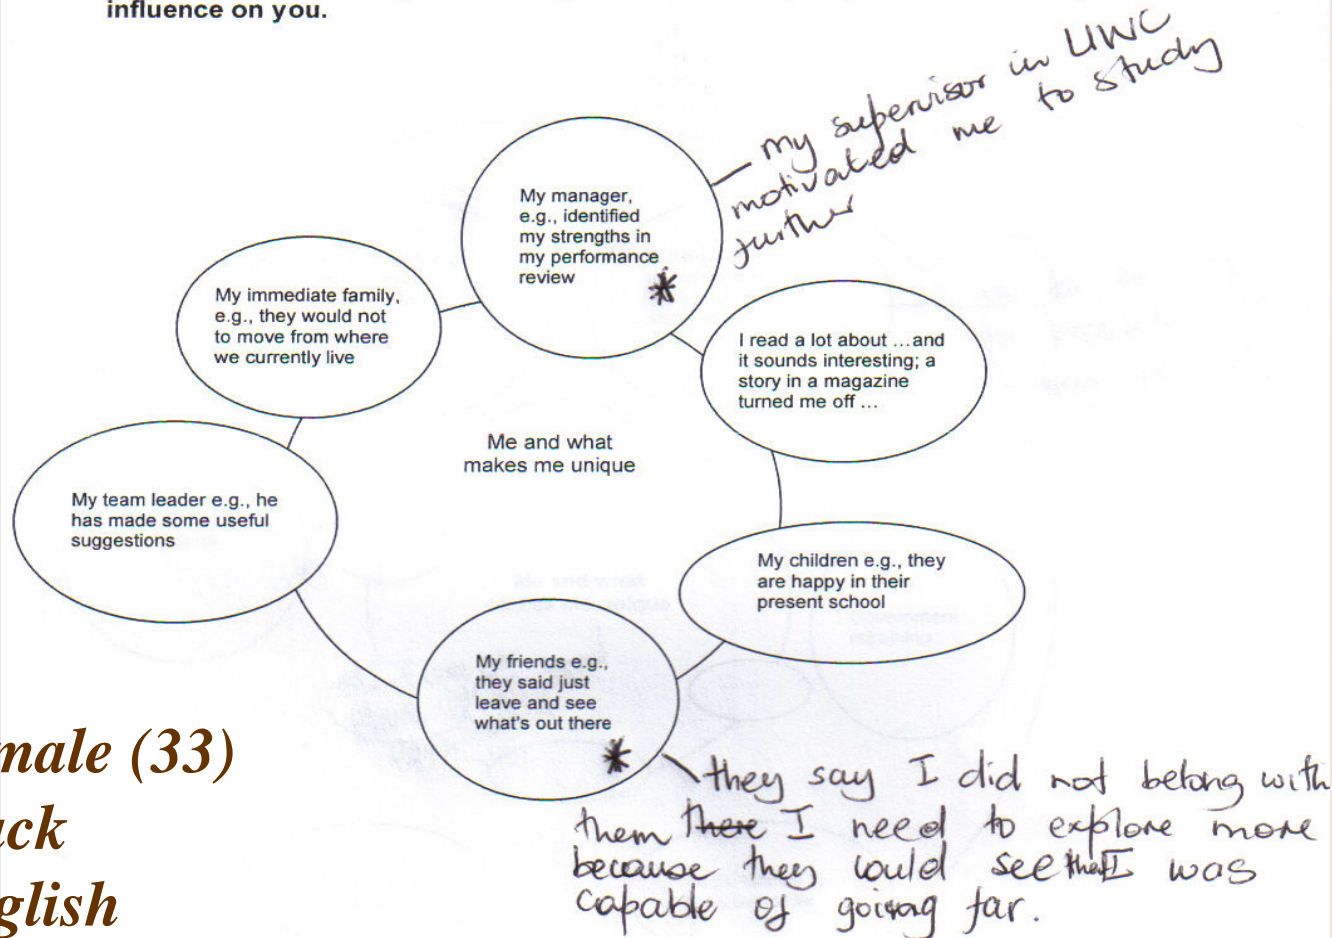 influence on you.
my supervisor in UWC
motivated me to study
further
My manager,
e.g., identified
my strengths in
my performance
review
*
My immediate family,
e.g., they would not
to move from where
we currently live
I read a lot about ...and
it sounds interesting; a
story in a magazine
turned me off ...
Me and what
makes me unique
My team leader e.g., he
has made some useful
suggestions
My children e.g., they
are happy in their
present school
My friends e.g.,
they said just
leave and see
what's out there
*
they say I did not belong with
them there I need to explore more
because they could see that I was
capable of going far.
male (33)
ack
glish